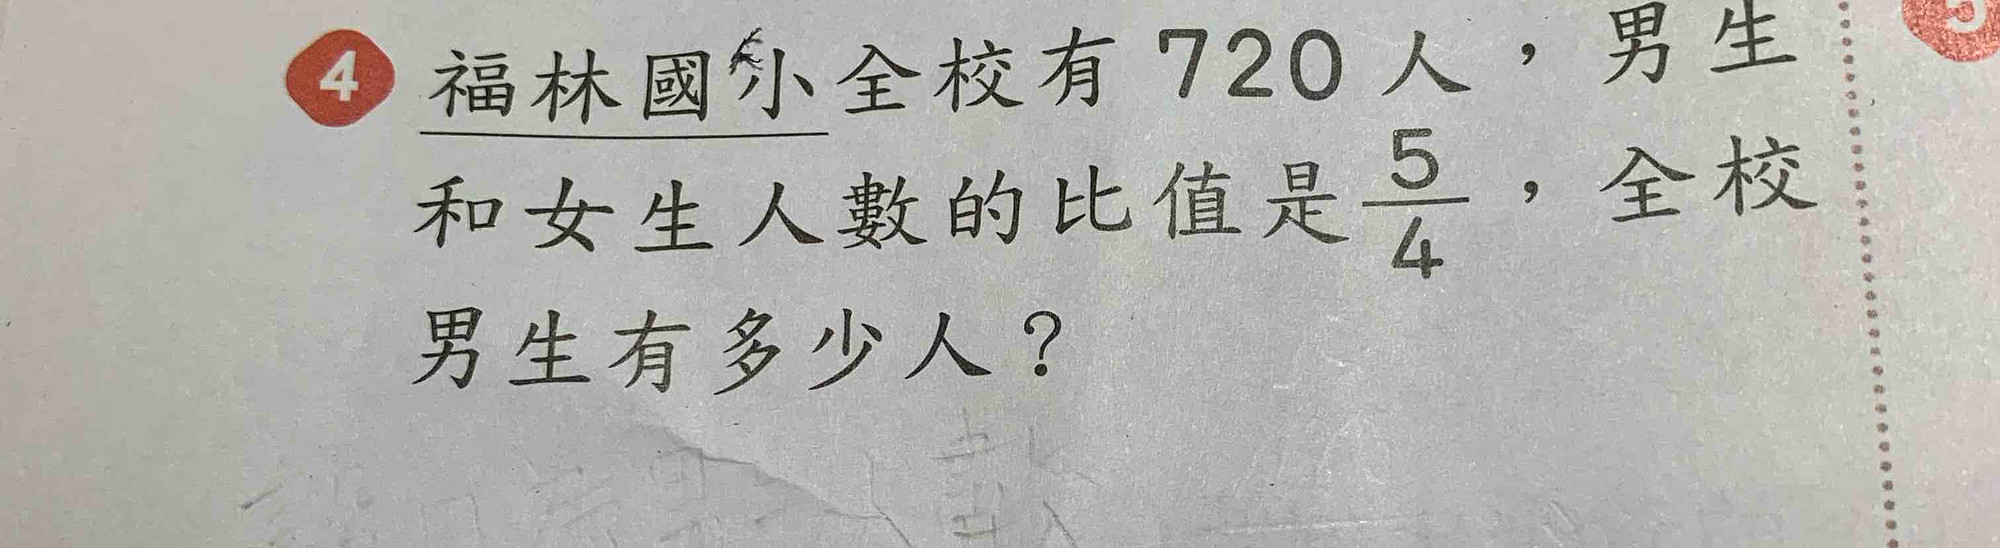 4 福林國小全校有 720 人，男生
和女生人數的比值是 5/4，全校
男生有多少人？
5